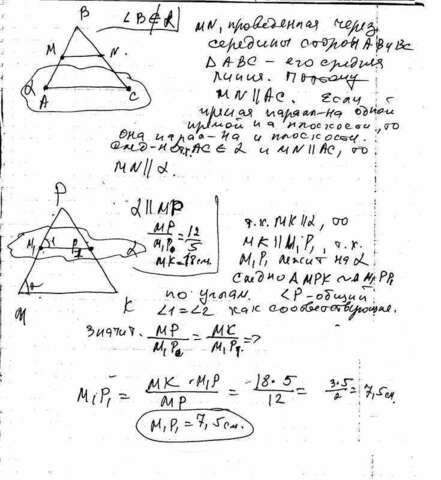 B
∠B∉α
M N
α A C
MN, проведенная через
середины сторон AB и BC
ΔABC – его средняя
линия. Поэтому
MN∥AC. Если
прямая паралл-на одной
прямой на плоскости, то
она пара-на и плоскости.
AC∈α и MN∥AC, то
MN∥α.
P
α∥MP
MP/M₁P₁ = 12/5
MK=18см
M₁ 1 P₁ α
M 2 K
т.к. MK∥α, то
MK∥M₁P₁, т.к.
M₁P₁ лежит на α
следно ΔMPK ∾ ΔM₁PP₁
по углам. ∠P-общий
∠1=∠2 как соответствующие.
значит. MP/M₁P = MK/M₁P₁ =>
M₁P₁ = MK·M₁P/MP = 18·5/12 = 3·5/2 = 7,5см.
M₁P₁ = 7,5см.